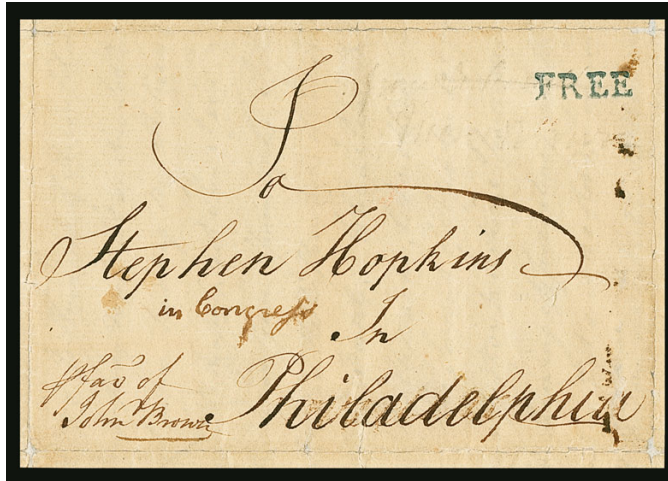 FREE
To
Stephen Hopkins
in Congress
In
Philadelphia
pr favr of
John Brown